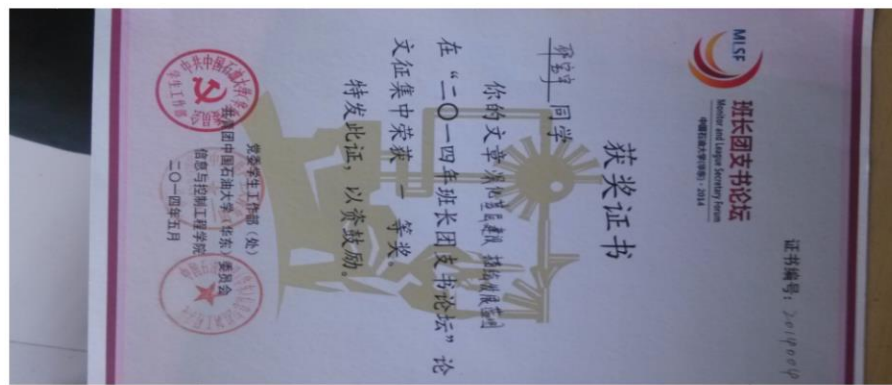 证书编号：2014004
MLSF
班长团支书论坛
Monitor and League Secretary Forum
中国石油大学(华东)·2014
获奖证书
同学
你的文章
在“二〇一四年班长团支书论坛”论
文征集中荣获 一 等奖。
特发此证，以资鼓励。
党委学生工作部（处）
共青团中国石油大学（华东）委员会
信息与控制工程学院
二〇一四年五月
中共中国石油大学
学生工作部